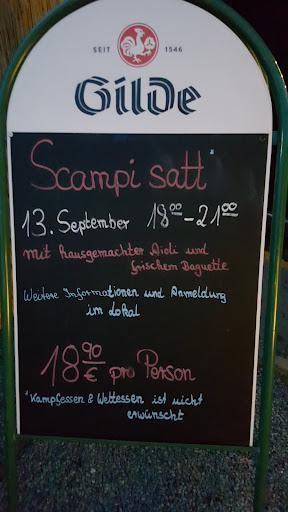 SEIT 1546
Gilde
Scampi satt*
13. September 18⁰⁰-21⁰⁰
mit hausgemachter Aioli und
frischem Baguette
Weitere Informationen und Anmeldung
im Lokal
18⁹⁰ € pro Person
*Kampfessen & Wettessen ist nicht
erwünscht